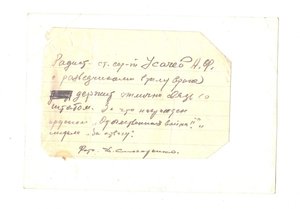 Радист ст. сер-т Усачев Н. Ф.
с разведчиками в тылу врага
держит отлично связь со
штабом. За что награжден
орденом „Отечественная война II"
медаль „За отвагу"
Фото